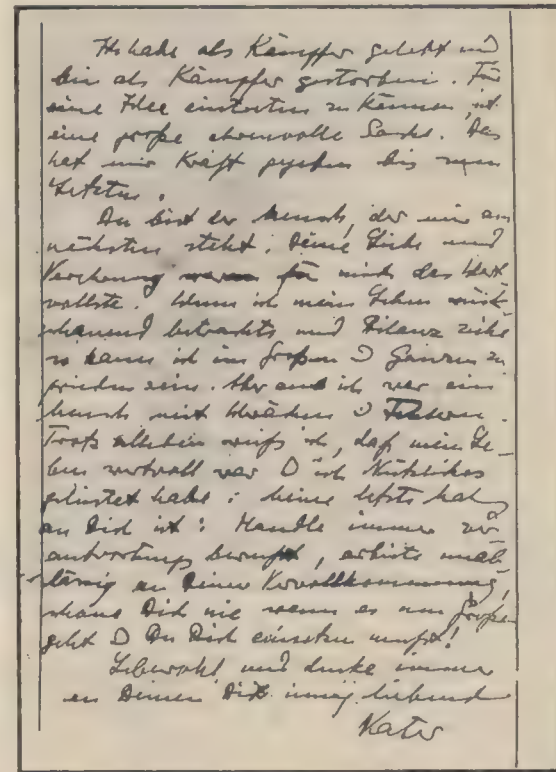 Ich habe als Kämpfer gelebt und
bin als Kämpfer gestorben. Für
eine Idee eintreten zu können, ist
eine große ehrenvolle Sache. Das
hat mir Kraft gegeben bis zum
Letzten.
Du bist der Mensch, der mir am
nächsten steht. Deine Liebe und
Verehrung waren für mich das Wert
vollste. Wenn ich mein Leben rück-
schauend betrachte und Bilanz ziehe
so kann ich im Großen u Ganzen zu
frieden sein. Aber auch ich war ein
Mensch mit Schwächen u Fehlern.
Trotz alledem weiß ich, daß mein Le-
ben wertvoll war u ich Nützliches
geleistet habe. Meine letzte
an Dich ist: Handle immer ver
antwortungsbewußt, arbeite unab-
lässig an Deiner Vervollkommnung,
schone Dich nie wenn es um Großes
geht u Du Dich einsetzen mußt!
Lebewohl und denke immer
an Deinen Dich innig liebenden
Vater